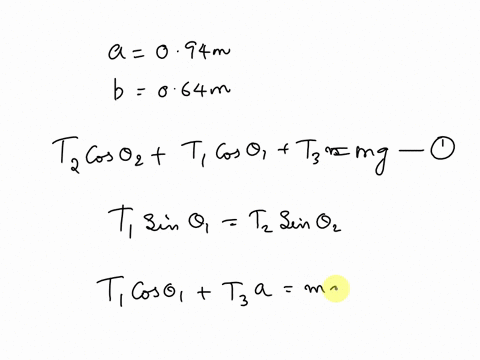 a = 0.94m
b = 0.64m
T₂ Cos θ₂ + T₁ Cos θ₁ + T₃ = mg — ①
T₁ Sin θ₁ = T₂ Sin θ₂
T₁ Cos θ₁ + T₃ a = m